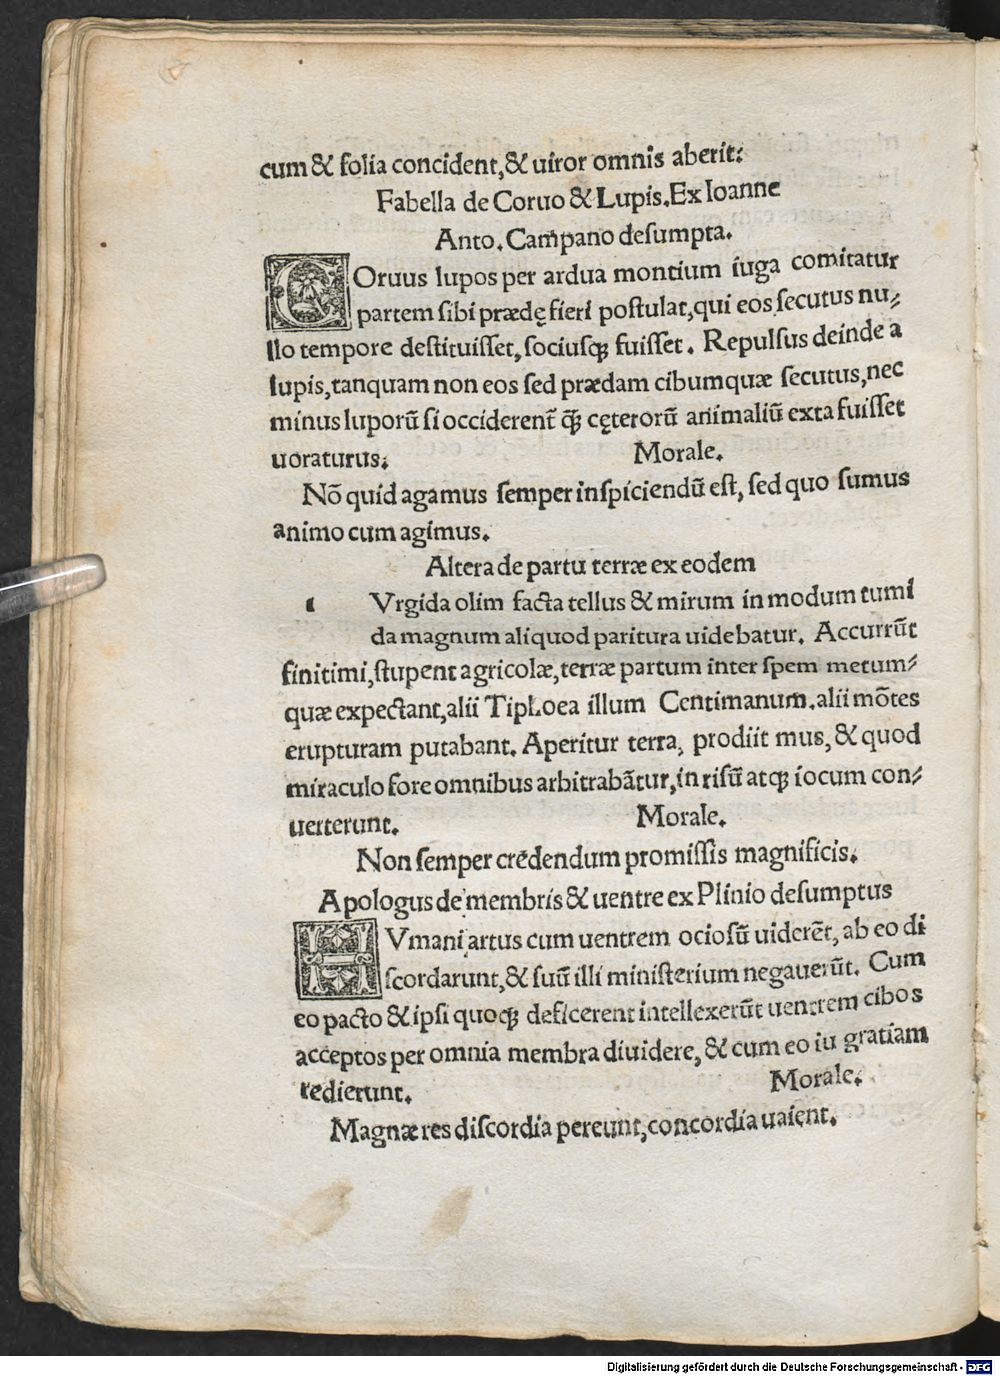 cum & folia concident,& uiror omnis aberit:
Fabella de Coruo & Lupis.Ex Ioanne
Anto. Campano desumpta.
COruus lupos per ardua montium iuga comitatur
partem sibi prædę fieri postulat,qui eos secutus nu-
llo tempore destituisset, sociusqꝫ fuisset. Repulsus deinde a
lupis,tanquam non eos sed prædam cibumquæ secutus,nec
minus luporū si occiderent̄ qꝫ̄ cęterorū animaliū exta fuisset
uoraturus. Morale.
Nō quid agamus semper inspiciendū est, sed quo sumus
animo cum agimus.
Altera de partu terræ ex eodem
t Vrgida olim facta tellus & mirum in modum tumi
da magnum aliquod paritura uidebatur. Accurrūt
finitimi,stupent agricolæ,terræ partum inter spem metum-
quæ expectant,alii Tiphoea illum Centimanum.alii mōtes
erupturam putabant. Aperitur terra, prodiit mus, & quod
miraculo fore omnibus arbitrabātur,in risū atqꝫ iocum con-
uerterunt. Morale.
Non semper credendum promissis magnificis.
Apologus de membris & uentre ex Plinio desumptus
HVmani artus cum uentrem ociosū uiderēt, ab eo di
scordarunt,& suū illi ministerium negauerūt. Cum
eo pacto & ipsi quoqꝫ deficerent intellexerūt uentrem cibos
acceptos per omnia membra diuidere, & cum eo iu gratiam
redierunt. Morale.
Magnæ res discordia pereunt,concordia ualent.
Digitalisierung gefördert durch die Deutsche Forschungsgemeinschaft - DFG